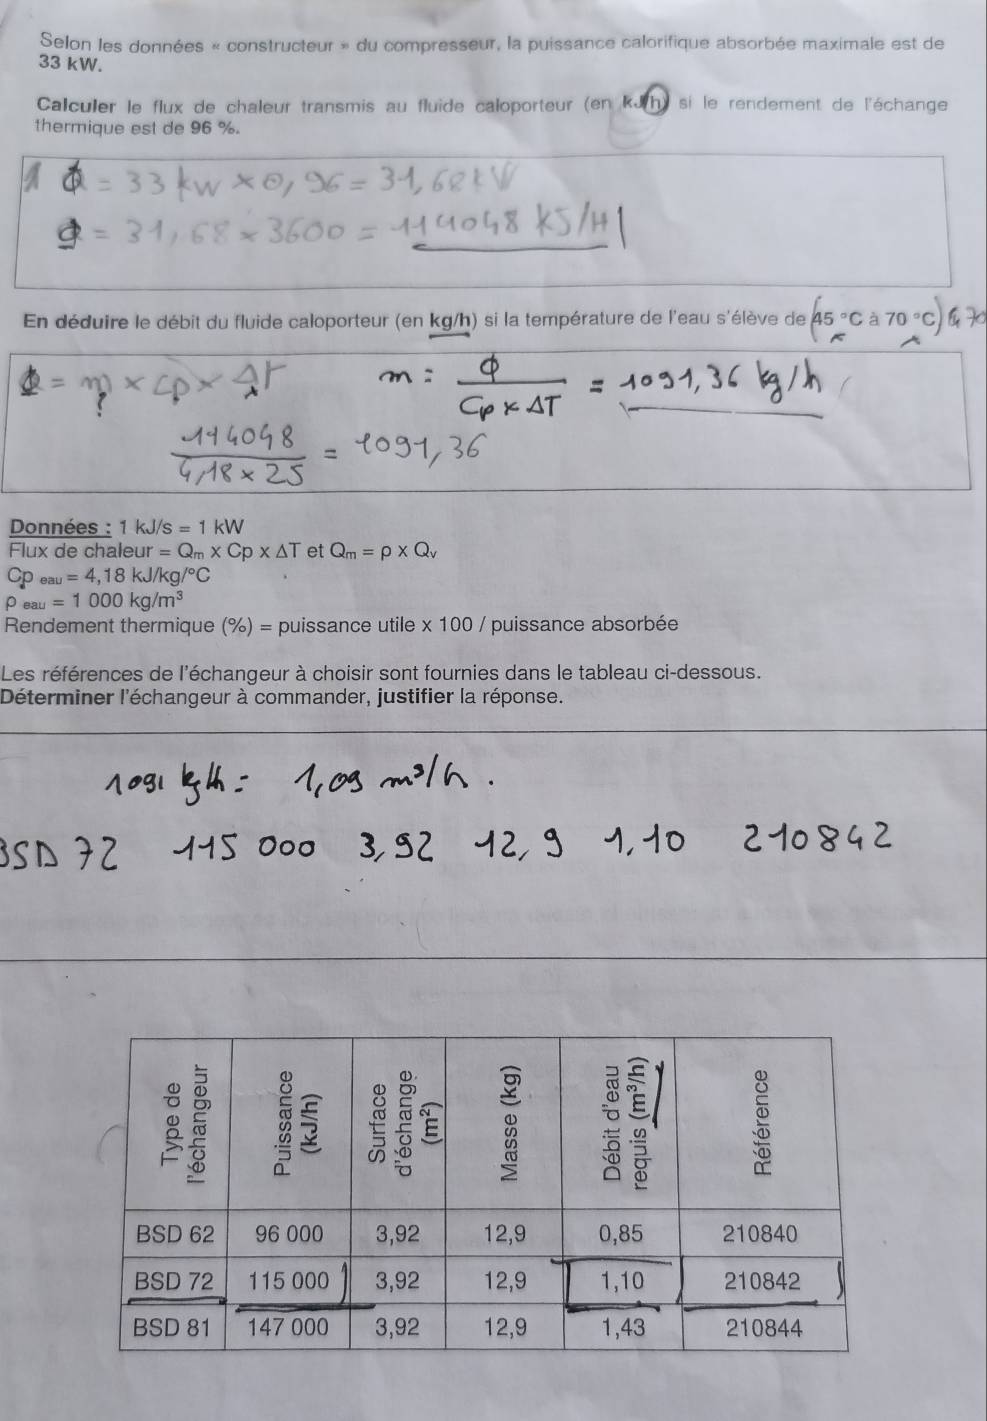 Selon les données « constructeur » du compresseur, la puissance calorifique absorbée maximale est de
33 kW.
Calculer le flux de chaleur transmis au fluide caloporteur (en kJ/h) si le rendement de l'échange
thermique est de 96 %.
1 Φ = 33 kW × 0,96 = 31,68 kW
Φ = 31,68 × 3600 = 114048 KJ/H
En déduire le débit du fluide caloporteur (en kg/h) si la température de l'eau s'élève de (45 °C à 70 °C)
Φ = m × Cp × ΔT m = Φ / Cp × ΔT = 1091,36 kg/h
?
114048 / 4,18 × 25 = 1091,36
Données : 1 kJ/s = 1 kW
Flux de chaleur = Qm x Cp x ΔT et Qm = ρ x Qv
Cp eau = 4,18 kJ/kg/°C
ρ eau = 1 000 kg/m³
Rendement thermique (%) = puissance utile x 100 / puissance absorbée
Les références de l'échangeur à choisir sont fournies dans le tableau ci-dessous.
Déterminer l'échangeur à commander, justifier la réponse.
1091 kg/h = 1,09 m³/h.
BSD 72 115 000 3,92 12,9 1,10 210842
Type de l'échangeur Puissance (kJ/h) Surface d'échange (m²) Masse (kg) Débit d'eau requis (m³/h) Référence
BSD 62 96 000 3,92 12,9 0,85 210840
BSD 72 115 000 3,92 12,9 1,10 210842
BSD 81 147 000 3,92 12,9 1,43 210844